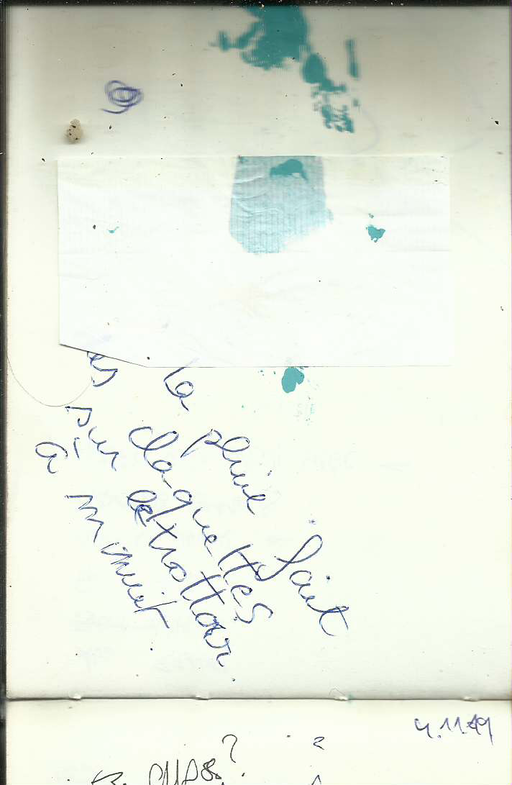 la pluie fait
des claquettes
sur le trottoir
à minuit
4.11.49